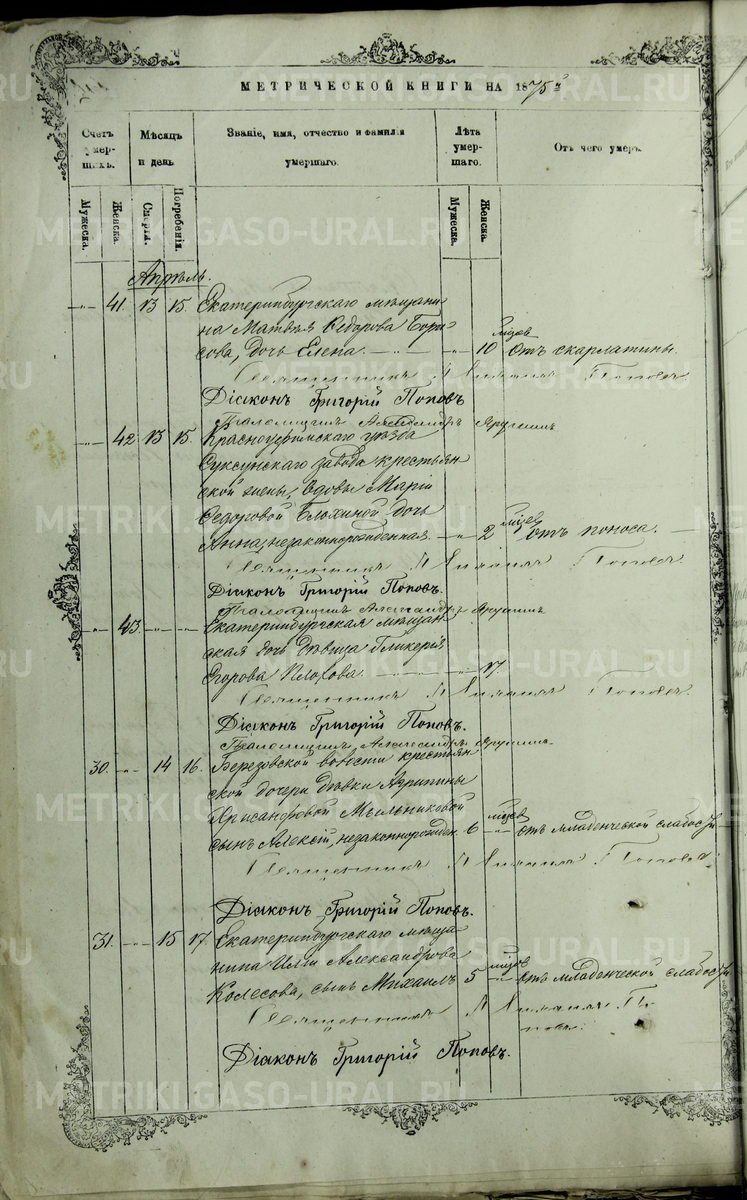 МЕТРИЧЕСКОЙ КНИГИ НА 1875й
Счетъ умер-шихъ.
Мѣсяцъ и день
Званіе, имя, отчество и фамилія умершаго.
Лѣта умер-шаго.
Отъ чего умеръ.
Мужеска.
Женска.
Смерти.
Погребенія.
Мужеска.
Женска.
Апрѣль.
41. 13 15. Екатеринбургскаго мѣщани-
на Матвѣя Ѳедорова Бори-
сова, дочь Елена. 10 мѣсяц. отъ скарлатины.
Священникъ Попов
Діаконъ Григорій Поповъ
Псаломщикъ Александръ
42 13 15. Красноуфимскаго уѣзда
Суксунскаго завода крестьян-
ской жены, вдовы Маріи
Ѳедоровой Блохиной дочь
Анна, незаконнорожденная. 2 мѣсяц. отъ поноса.
Священникъ Попов
Діаконъ Григорій Поповъ.
Псаломщикъ Александръ
43. Екатеринбургская мѣщан-
ская дочь дѣвица Гликерія
Егорова 17.
Священникъ Попов
Діаконъ Григорій Поповъ.
Псаломщикъ Александръ
30. 14 16. Березовской волости крестьян-
ской дочери дѣвки Агрипины
Хрисанфовой Мыльниковой
сынъ Алексій, незаконнорожден. 6 мѣсяц. отъ младенческой слабости
Священникъ Попов
Діаконъ Григорій Поповъ.
31. 15 17. Екатеринбургскаго мѣща-
нина Иліи Александрова
Колесова, сынъ Михаилъ 5 мѣсяц. отъ младенческой слабости
Священникъ По-
повъ.
Діаконъ Григорій Поповъ.
METRIKI.GASO-URAL.RU